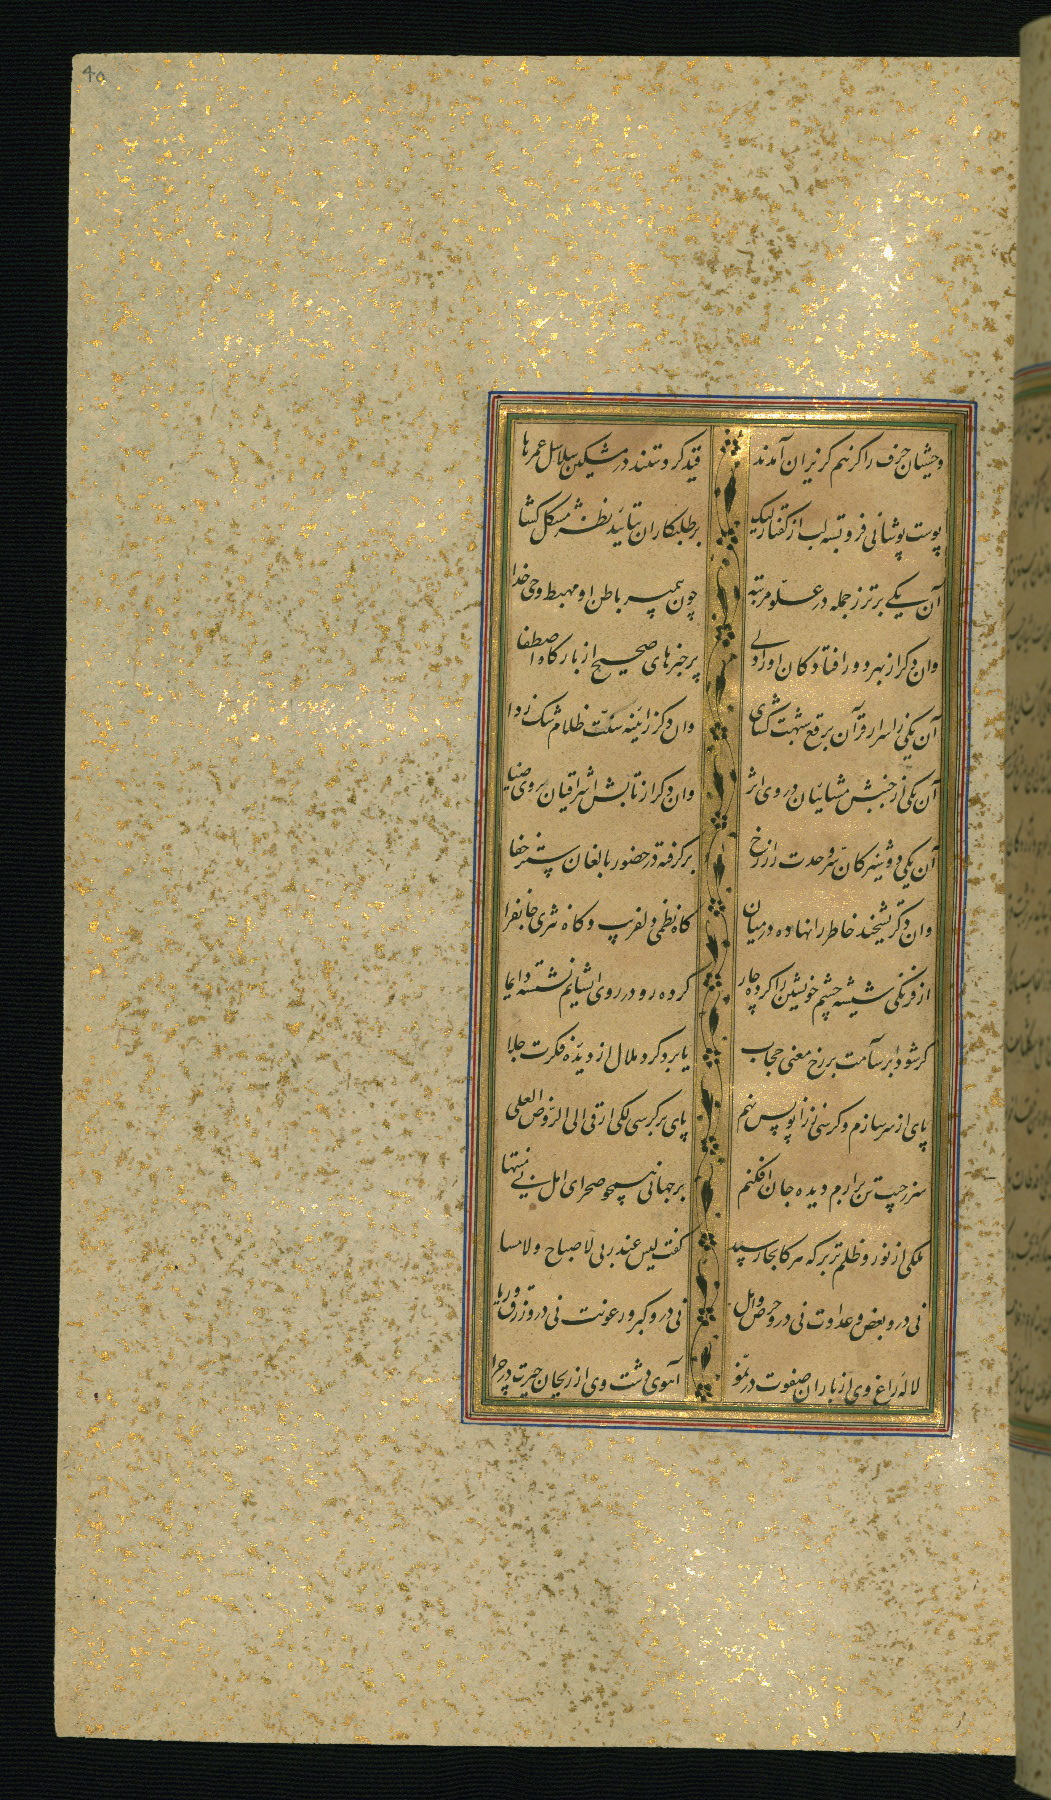 40
وحشیان حرف را کز هم گریزان آمدند
قید کردستند در مشکین سلاسل عمرها
پوست پوشانی فرو بسته لب از گفتار لیک
بر طلبکاران بتأیید نظر مشکل گشا
آن یکی برتر ز جمله در علو مرتبه
چون پیمبر باطن او مهبط وحی خدا
وان دگر از بهر دور افتادگان اوردی
پر خبرهای صحیح از بارگاه اصطفا
آن یکی ز اسرار قرآن برقع شبهت گشای
وان دگر ز آیینه سنت ظلام شک زدا
آن یکی از جنبش مشائیان در وی اثر
وان دگر از تابش اشراقیان بروی ضیا
آن یکی دوشیزگان سر وحدت را ز رخ
برگرفته در حضور بالغان ستر خفا
وان دگر خاطر را نهاده در میان
گاه نظمی دلفریب و گاه نثری جانفزا
از فرنگی شیشه چشم خویشتن را کرده چار
کرده رو در روی ایشانم نشسته دایما
گر شود ابر سآمت بر رخ معنی حجاب
یا برد گرد ملال از دیده فکرت جلا
پای از سر سازم و کرسی ز زانو پس نهم
پای بر کرسی لکی ارقی الی الروض العلی
سر ز جیب تن برآرم دیده جان افکنم
بر جهانی همچو صحرای امل بی منتها
ملکی از نور و ظلم برتر که هر کانجا رسید
گفت لیس عند ربی لا صباح و لا مسا
نی درو بغض و عداوت نی درو حرص و امل
نی درو کبر و رعونت نی درو زرق و ریا
لاله راغ وی از باران صفوت در نمو
آهوی دشت وی از ریحان حیرت در چرا